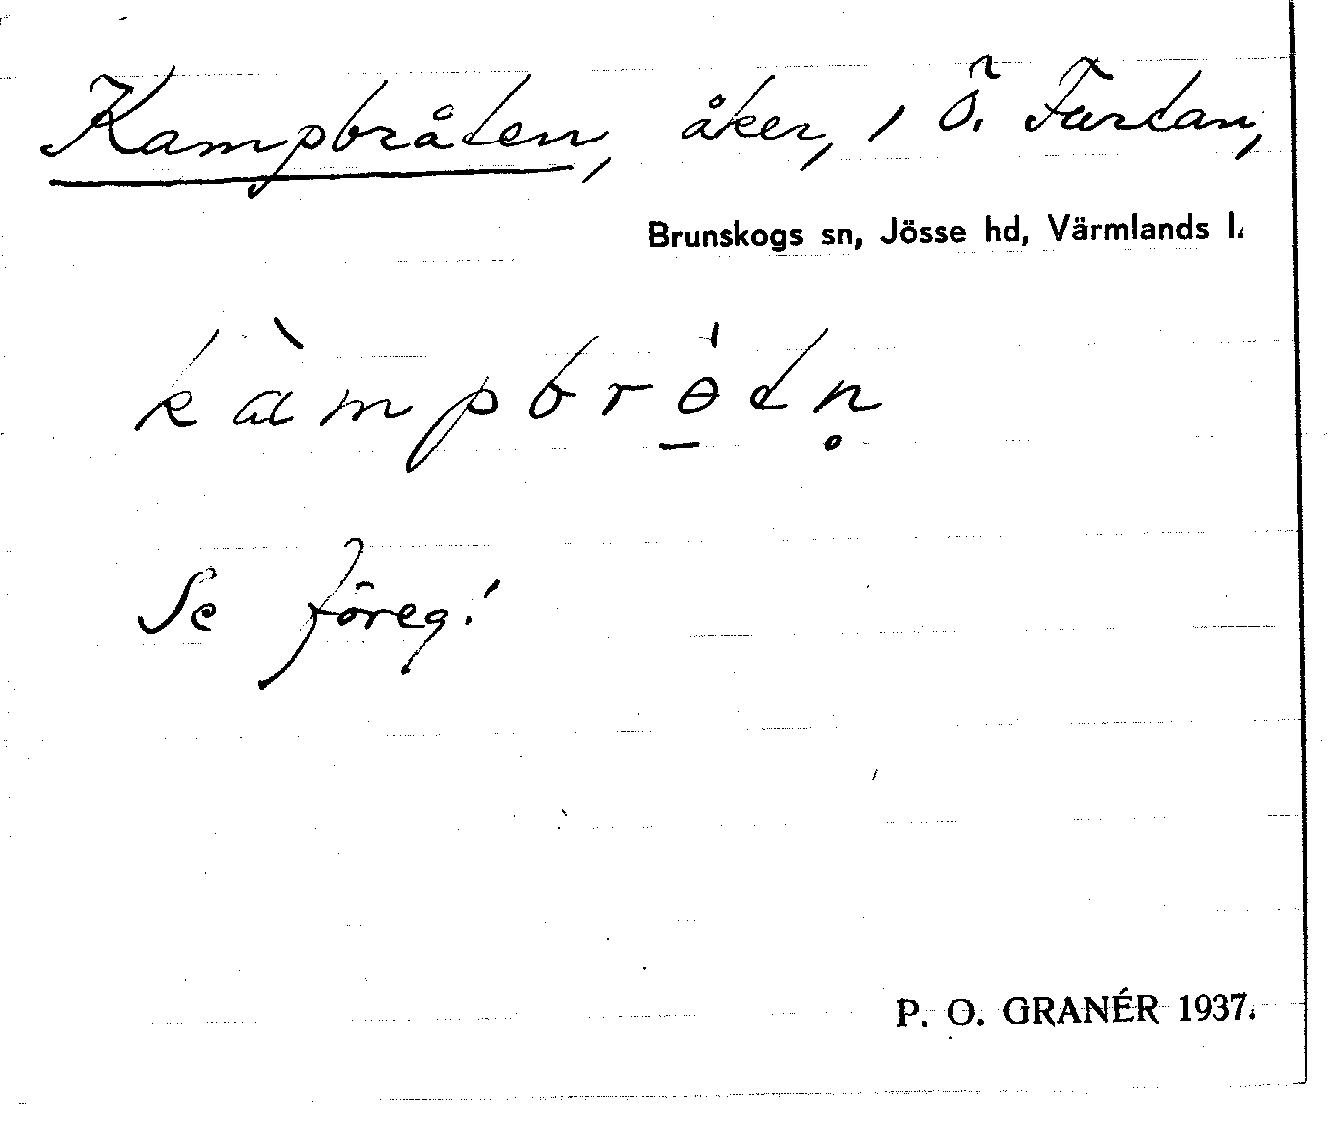 Kampbråten, åker, i Ö. Furtan,
Brunskogs sn, Jösse hd, Värmlands l.
kàmpbrɵ̠́tn̥
Se föreg.!
P. O. GRANÉR 1937.